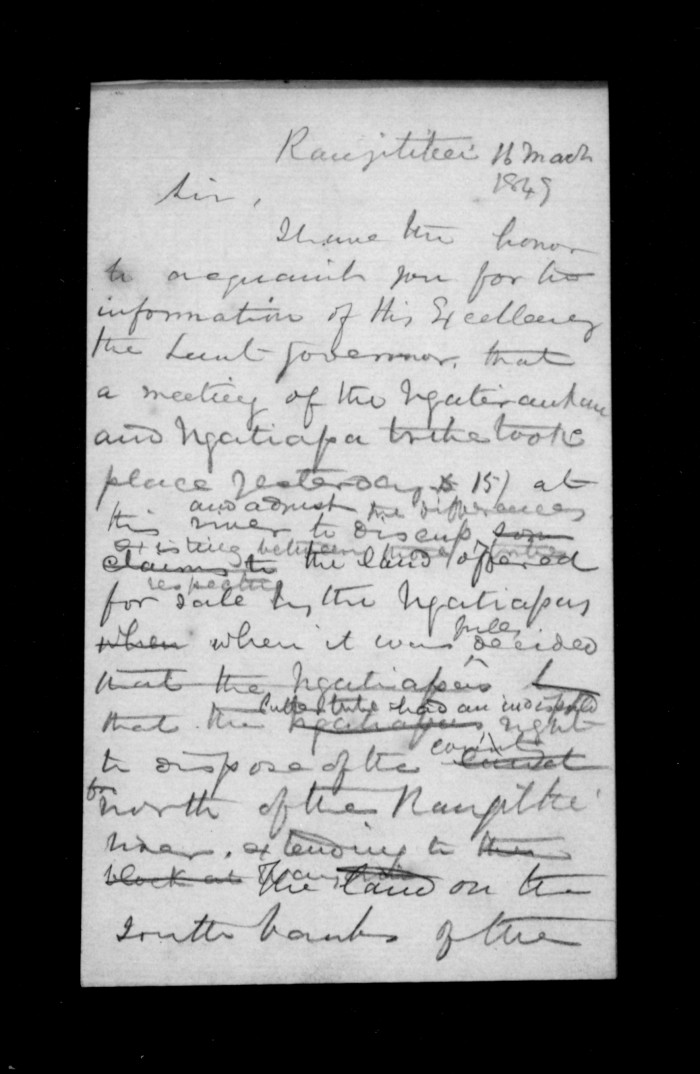 Rangitikei 16 March
1849
Sir,
I have the honor
to acquaint you for the
information of His Excellency
the Lieut Governor, that
a meeting of the Ngatiraukau
and Ngatiapa tribe took
place yesterday 15) at
and adjust the differences
this river to discuss some
existing between those
claims to the land offered
respecting
for sale by the Ngatiapas
when when it was decided
that the Ngatiapas
latter tribe had an
that the Ngatiapas right
to dispose of the
north of the Rangitikei
river, extending to the
block at the land on the
South banks of the